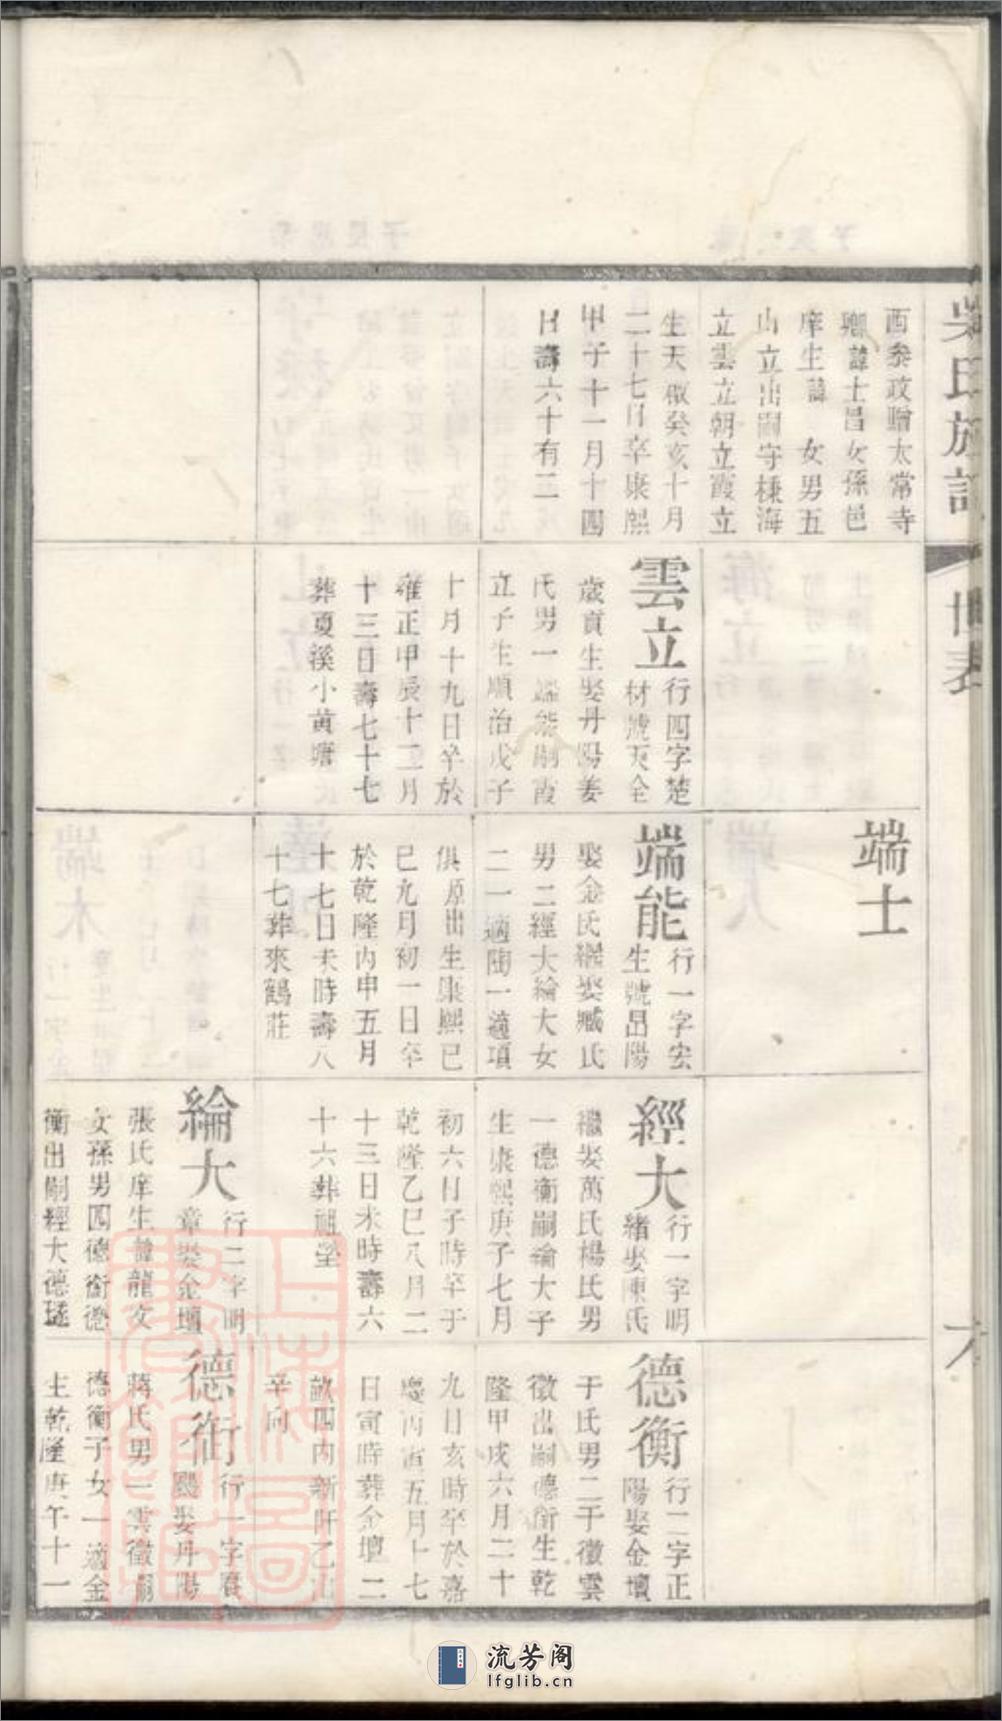 吴氏族譜
世表
六
西叅政贈太常寺
卿諱士昌女孫邑
庠生諱 女男五
山立出嗣守楝海
立雲立朝立霞立
生天啟癸亥十月
二十七日卒康熙
甲子十一月十四
日壽六十有二
雲立
行四字楚
材號天全
歲貢生娶丹陽姜
氏男一端能嗣霞
立子生順治戊子
十月十九日卒於
雍正甲辰十二月
十三日壽七十七
葬夏溪小黄塘
端士
端能
行一字宏
生號昌陽
娶金氏繼娶臧氏
男二經大綸大女
二一適陶一適項
俱原出生康熙己
巳九月初一日卒
於乾隆丙申五月
十七日未時壽八
十七葬來鶴莊
經大
行一字明
緒娶陳氏
繼娶萬氏楊氏男
一德衡嗣綸大子
生康熙庚子七月
初六日子時卒于
乾隆乙巳八月二
十三日未時壽六
十六葬祖塋
綸大
行二字明
章娶金壇
張氏庠生諱龍文
女孫男四德衔德
衡出嗣經大德璲
德衡
行二字正
陽娶金壇
于氏男二于徵雲
徵出嗣德衔生乾
隆甲戌六月二十
九日亥時卒於嘉
慶丙寅五月十七
日寅時葬金壇二
畝四内新阡乙山
辛向
德衔
行一字賡
颺娶丹陽
蔣氏男一雲徵嗣
德衡子女一適金
生乾隆庚午十一
流芳阁
lfglib.cn